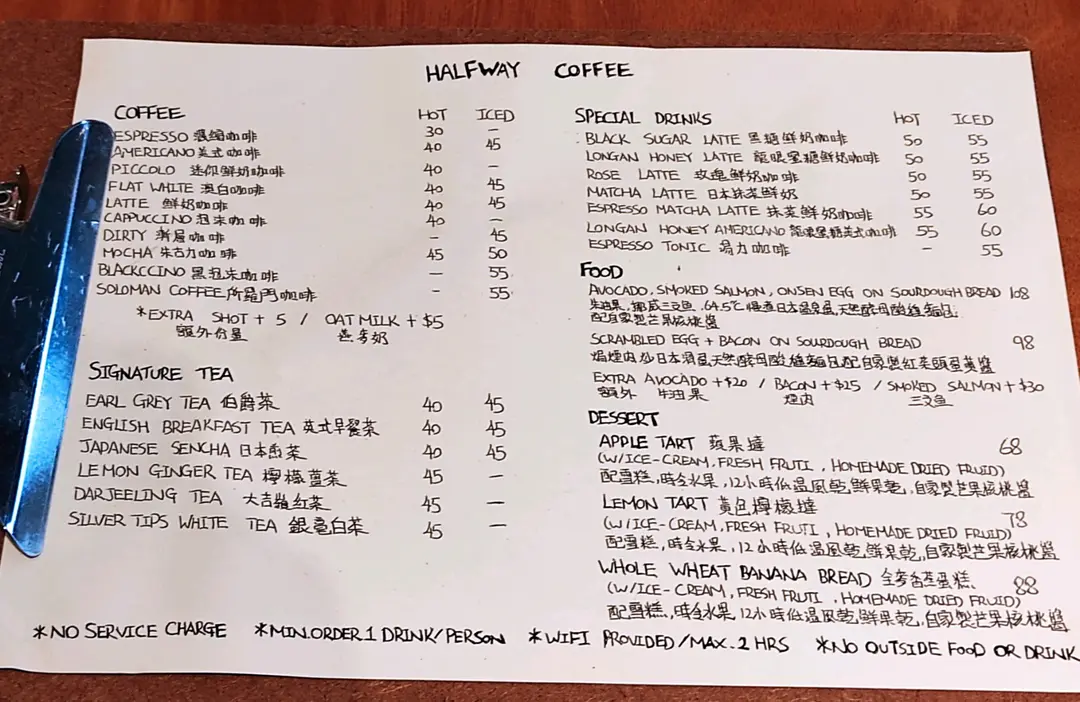 HALFWAY COFFEE
COFFEE HOT ICED
ESPRESSO 濃縮咖啡 30 —
AMERICANO 美式咖啡 40 45
PICCOLO 迷你鮮奶咖啡 40 —
FLAT WHITE 澳白咖啡 40 45
LATTE 鮮奶咖啡 40 45
CAPPUCCINO 泡沫咖啡 40 —
DIRTY 漸層咖啡 — 45
MOCHA 朱古力咖啡 45 50
BLACKCCINO 黑泡沫咖啡 — 55
SOLOMAN COFFEE 所羅門咖啡 — 55
*EXTRA SHOT + 5 / OAT MILK + $5
額外份量 燕麥奶
SIGNATURE TEA
EARL GREY TEA 伯爵茶 40 45
ENGLISH BREAKFAST TEA 英式早餐茶 40 45
JAPANESE SENCHA 日本煎茶 40 45
LEMON GINGER TEA 檸檬薑茶 45 —
DARJEELING TEA 大吉嶺紅茶 45 —
SILVER TIPS WHITE TEA 銀毫白茶 45 —
SPECIAL DRINKS HOT ICED
BLACK SUGAR LATTE 黑糖鮮奶咖啡 50 55
LONGAN HONEY LATTE 龍眼蜜糖鮮奶咖啡 50 55
ROSE LATTE 玫瑰鮮奶咖啡 50 55
MATCHA LATTE 日本抹茶鮮奶 50 55
ESPRESSO MATCHA LATTE 抹茶鮮奶咖啡 55 60
LONGAN HONEY AMERICANO 龍眼蜜糖美式咖啡 55 60
ESPRESSO TONIC 湯力咖啡 — 55
FOOD
AVOCADO, SMOKED SALMON, ONSEN EGG ON SOURDOUGH BREAD 108
牛油果, 挪威三文魚, 64.5℃慢煮日本溫泉蛋, 天然酵母酸種麵包
配自家製芒果核桃醬
SCRAMBLED EGG + BACON ON SOURDOUGH BREAD 98
焗煙肉炒日本滑蛋天然酵母酸種麵包配自家製紅菜頭蛋黃醬
EXTRA AVOCADO + $20 / BACON + $25 / SMOKED SALMON + $30
額外 牛油果 煙肉 三文魚
DESSERT
APPLE TART 蘋果撻 68
(W/ICE-CREAM, FRESH FRUTI, HOMEMADE DRIED FRUID)
配雪糕, 時令水果, 12小時低溫風乾鮮果乾, 自家製芒果核桃醬
LEMON TART 黃色檸檬撻 78
(W/ICE-CREAM, FRESH FRUTI, HOMEMADE DRIED FRUID)
配雪糕, 時令水果, 12小時低溫風乾鮮果乾, 自家製芒果核桃醬
WHOLE WHEAT BANANA BREAD 全麥香蕉蛋糕 88
(W/ICE-CREAM, FRESH FRUTI, HOMEMADE DRIED FRUID)
配雪糕, 時令水果, 12小時低溫風乾鮮果乾, 自家製芒果核桃醬
*NO SERVICE CHARGE *MIN.ORDER 1 DRINK/PERSON *WIFI PROVIDED/MAX. 2 HRS *NO OUTSIDE FOOD OR DRINK